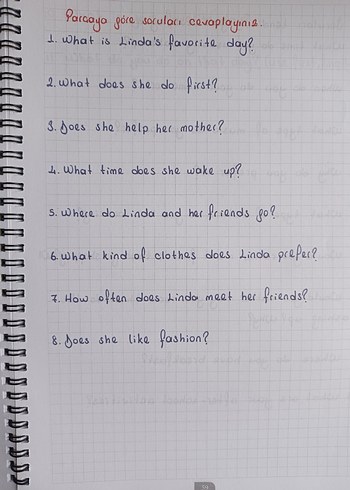 Parçaya göre soruları cevaplayınız.
1. What is Linda's favorite day?
2. What does she do first?
3. Does she help her mother?
4. What time does she wake up?
5. Where do Linda and her friends go?
6. What kind of clothes does Linda prefer?
7. How often does Linda meet her friends?
8. Does she like fashion?